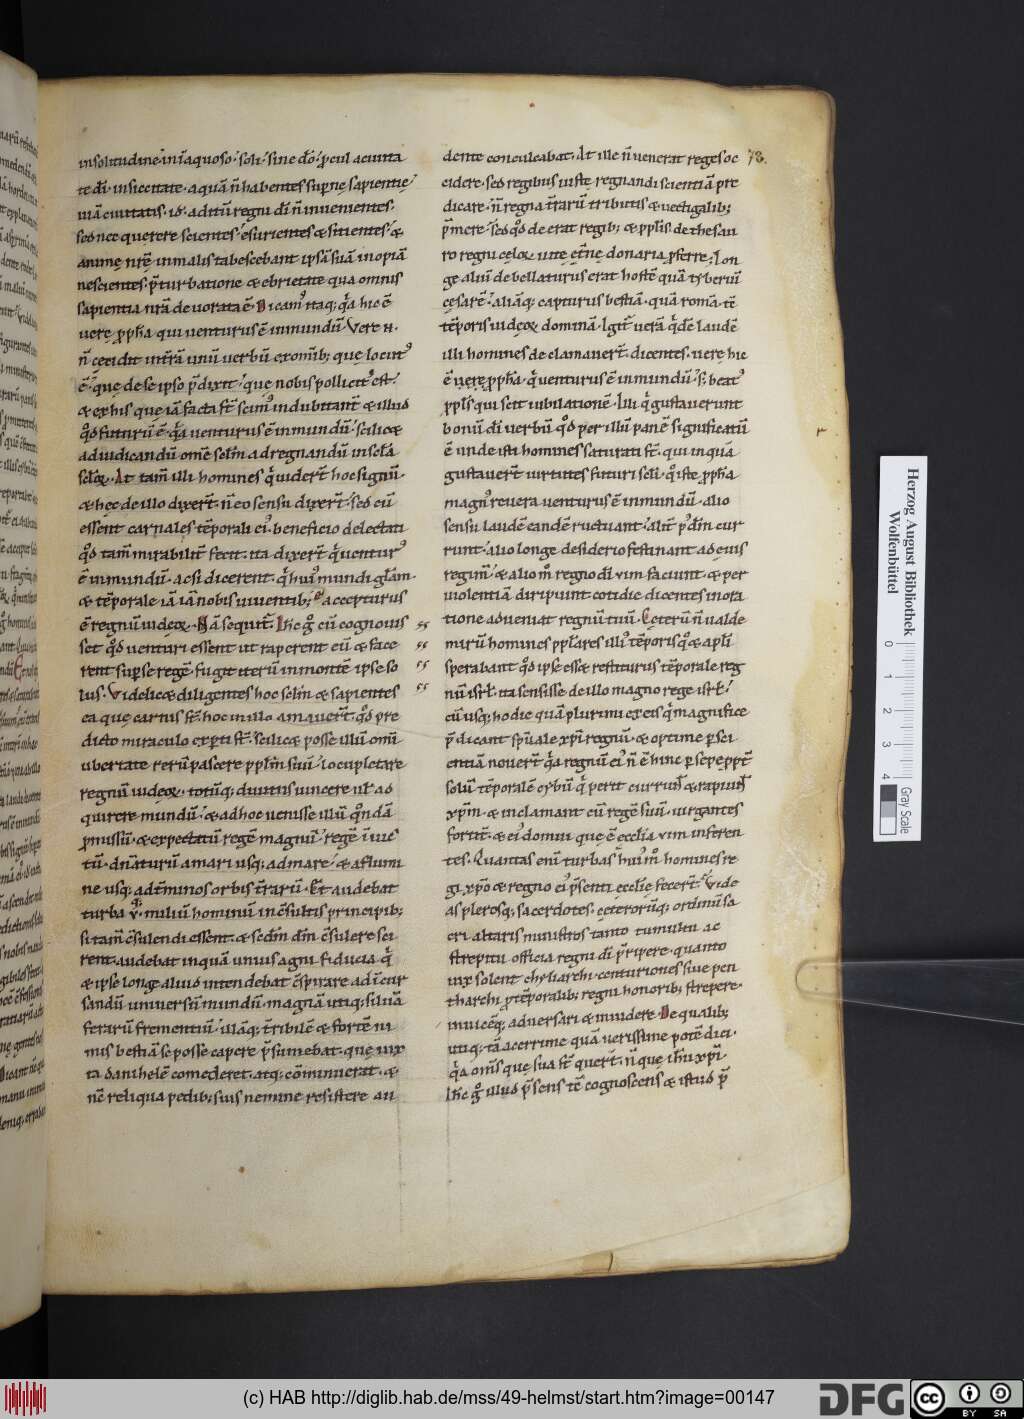 in solitudine in inaquoso· soli· sine dõ· ꝓcul a ciuita
te di᷑· in siccitate· aquã ñ habentes suꝑnę sapientię·
uiã ciuitatis· id· aditũ regni di᷑ ñ inuenientes·
sed nec querere scientes· esurientes & sitientes· &
animę nr̃ę in malis tabescebant ipsã suã inopiã
nescientes· p̃ turbatione & ebrietate qua omnis
sapientia nr̃a deuorata ẽ· Dicam᷒ itaq; q̃a hic ẽ
uere ꝓph̃a qui uenturus ẽ in mundũ· Vere ·N·
ñ cecidit in tr̃ã unũ uerbũ ex om̃ib; quę locut᷒
ẽ· quę de se ipso p̃dixit· quę nobis pollicit᷒ est·
& ex his quę iã facta st̃ scim᷒ indubitant̃ & illud
qď futurũ ẽ· q̃a uenturus ẽ in mundũ· scilic&
adiudicandũ om̃e scl̃m ad regnandũ in scl̃a
scl̃oꝝ. At tam̃ illi homines q̃ uider̃t hoc signũ·
& hęc de illo dixer̃t· ñ eo sensu dixer̃t· sed cũ
essent carnales tẽporali ei᷒ beneficio delectati
qď tam̃ mirabilit̃ fecit· ita dixer̃t q̃ uentur᷒
ẽ in mundũ· ac si dicerent· q̃ hui᷒ mundi gl̃am
& tẽporale iã iã nobis uiuentib; accepturus
ẽ regnũ iudeoꝝ. Nã sequit̃· Ih̃c g̊ cũ cognouis
set qď uenturi essent ut raperent eũ & face
rent sup se regẽ· fugit iterũ in montẽ ipse so
lus. Videlic& diligentes hoc scl̃m & sapientes
ea quę carnis st̃· hoc in illo amauer̃t· qď pre
dicto miraculo exꝑti st̃· scilic& posse illũ om̃i
ubertate rerũ pascere ppl̃m suũ· locupletare
regnũ iudeoꝝ· totũq; diuitiis uincere ul᷑ ad
quirere mundũ· & ad hoc uenisse illũ q̃n dã
ꝓmissũ· & expectatũ regẽ magnũ· regẽ inuic
tũ· dñaturũ a mari usq; ad mare· & a flumi
ne usq; ad t̃minos orbis tr̃arũ· Et audebat
turba ·v· miliũ hominũ in c̃sultis principib;
si tam̃ c̃sulendi essent· & sedm̃ dm̃ c̃sulere sci
rent· audebat inquã unius agni fiducia q̃
& ipse longe aliud intendebat c̃spirare ad ĩcur
sandũ uniuersũ mundũ· magnã utiq; siluã
ferarũ frementiũ· illãq; t̃ribilẽ & fortẽ ni
mis bestiã se posse capere p̃sumebat· quę uix
ta danihelẽ comederet· atq; cõminuerat· &
nẽ reliqua pedib; suis nemine resistere au
dente conculcabat· At ille ñ uenerat reges oc
cidere· sed regibus iustę regnandi scientiã pre
dicare· ñ regna tr̃arũ tributis & uectigalib;
p̃mere· sed qď deerat regib; & ppl̃is· de thesau
ro regni cęloꝝ uitę et̃nę donaria ꝓferre; Lon
ge aliũ debellaturus erat hostẽ quã tyberiũ
cęsarẽ· aliãq; capturus bestiã· quã romã tẽ
tẽporis iudeoꝝ dominã· Igit̃ uerã q̃dẽ laudẽ
illi homines declamauer̃t· dicentes· uere hic
ẽ uerę ꝓph̃a· q̃ uenturus ẽ in mundũ· s; beat᷒
ppl̃s qui scit iubilationẽ· Illi q̃ gustauerunt
bonũ di᷑ uerbũ· qď per illũ panẽ significatũ
ẽ unde isti homines saturati st̃· qui inquã
gustauer̃t uirtutes futuri scl̃i· q̊ iste ꝓph̃a
magn᷒ reuera uenturus ẽ in mundũ· alio
sensu laudẽ eandẽ ructuant· alit̃ p᷒ dm̃ cur
runt· alio longe desiderio festinant ad eius
regim̃· & alio m̊ regno di᷑ uim faciunt· & per
uiolentiã diripiunt cotidie dicentes in ora
tione adueniat regnũ tuũ· Ceterũ ñ ualde
mirũ homines ppl̃ares illi᷒ tẽporis q̊ & apl̃i
sperabant qď ipse ess& restiturus tẽporale reg
nũ isrl̃· ita sensisse de illo magno rege isrl̃·
cũ usq; hodie quã plurimi ex eis q̃ magnifice
p̃dicant sp̃uale xp̃i regnũ· & optime ꝑ sci
entiã nouer̃t q̃a regnũ ei᷒ ñ ẽ hinc ꝑ sepe ppt̃
solũ tẽporalẽ cybũ q̃ perit currunt̃ & rapiunt̃
xp̃m· & inclamant eũ regẽ suũ· iurgantes
fortit̃· & ei᷒ domui quę ẽ eccl̃ia uim inferen
tes. Quantas eni᷑ turbas hui᷒ m̊ homines re
gi xp̃o & regno ei᷒ p̃senti eccl̃ie fecer̃t· Vide
as plerosq; sacerdotes· ceterorũq; ordinũ sa
cri altaris ministros tanto tumultu ac
strepitu officia regni di᷑ p̃ripere· quanto
uix solent chyliarchi· centuriones siue pen
tharchi ꝓ tẽporalib; regni honorib; strepere·
inuicẽq; aduersari & inuidere. De qualib;
utiq; tã acerrime quã uerissime potẽ dici·
q̃a om̃s que sua st̃ quer̃t· ñ quę ih̃u xp̃i·
Ih̃c g̊ illud p̃sens tẽ cognoscens & istud p̃
73.
Herzog August Bibliothek
Wolfenbüttel
0 1 2 3 4
Gray Scale
(c) HAB http://diglib.hab.de/mss/49-helmst/start.htm?image=00147
DFG
cc BY SA